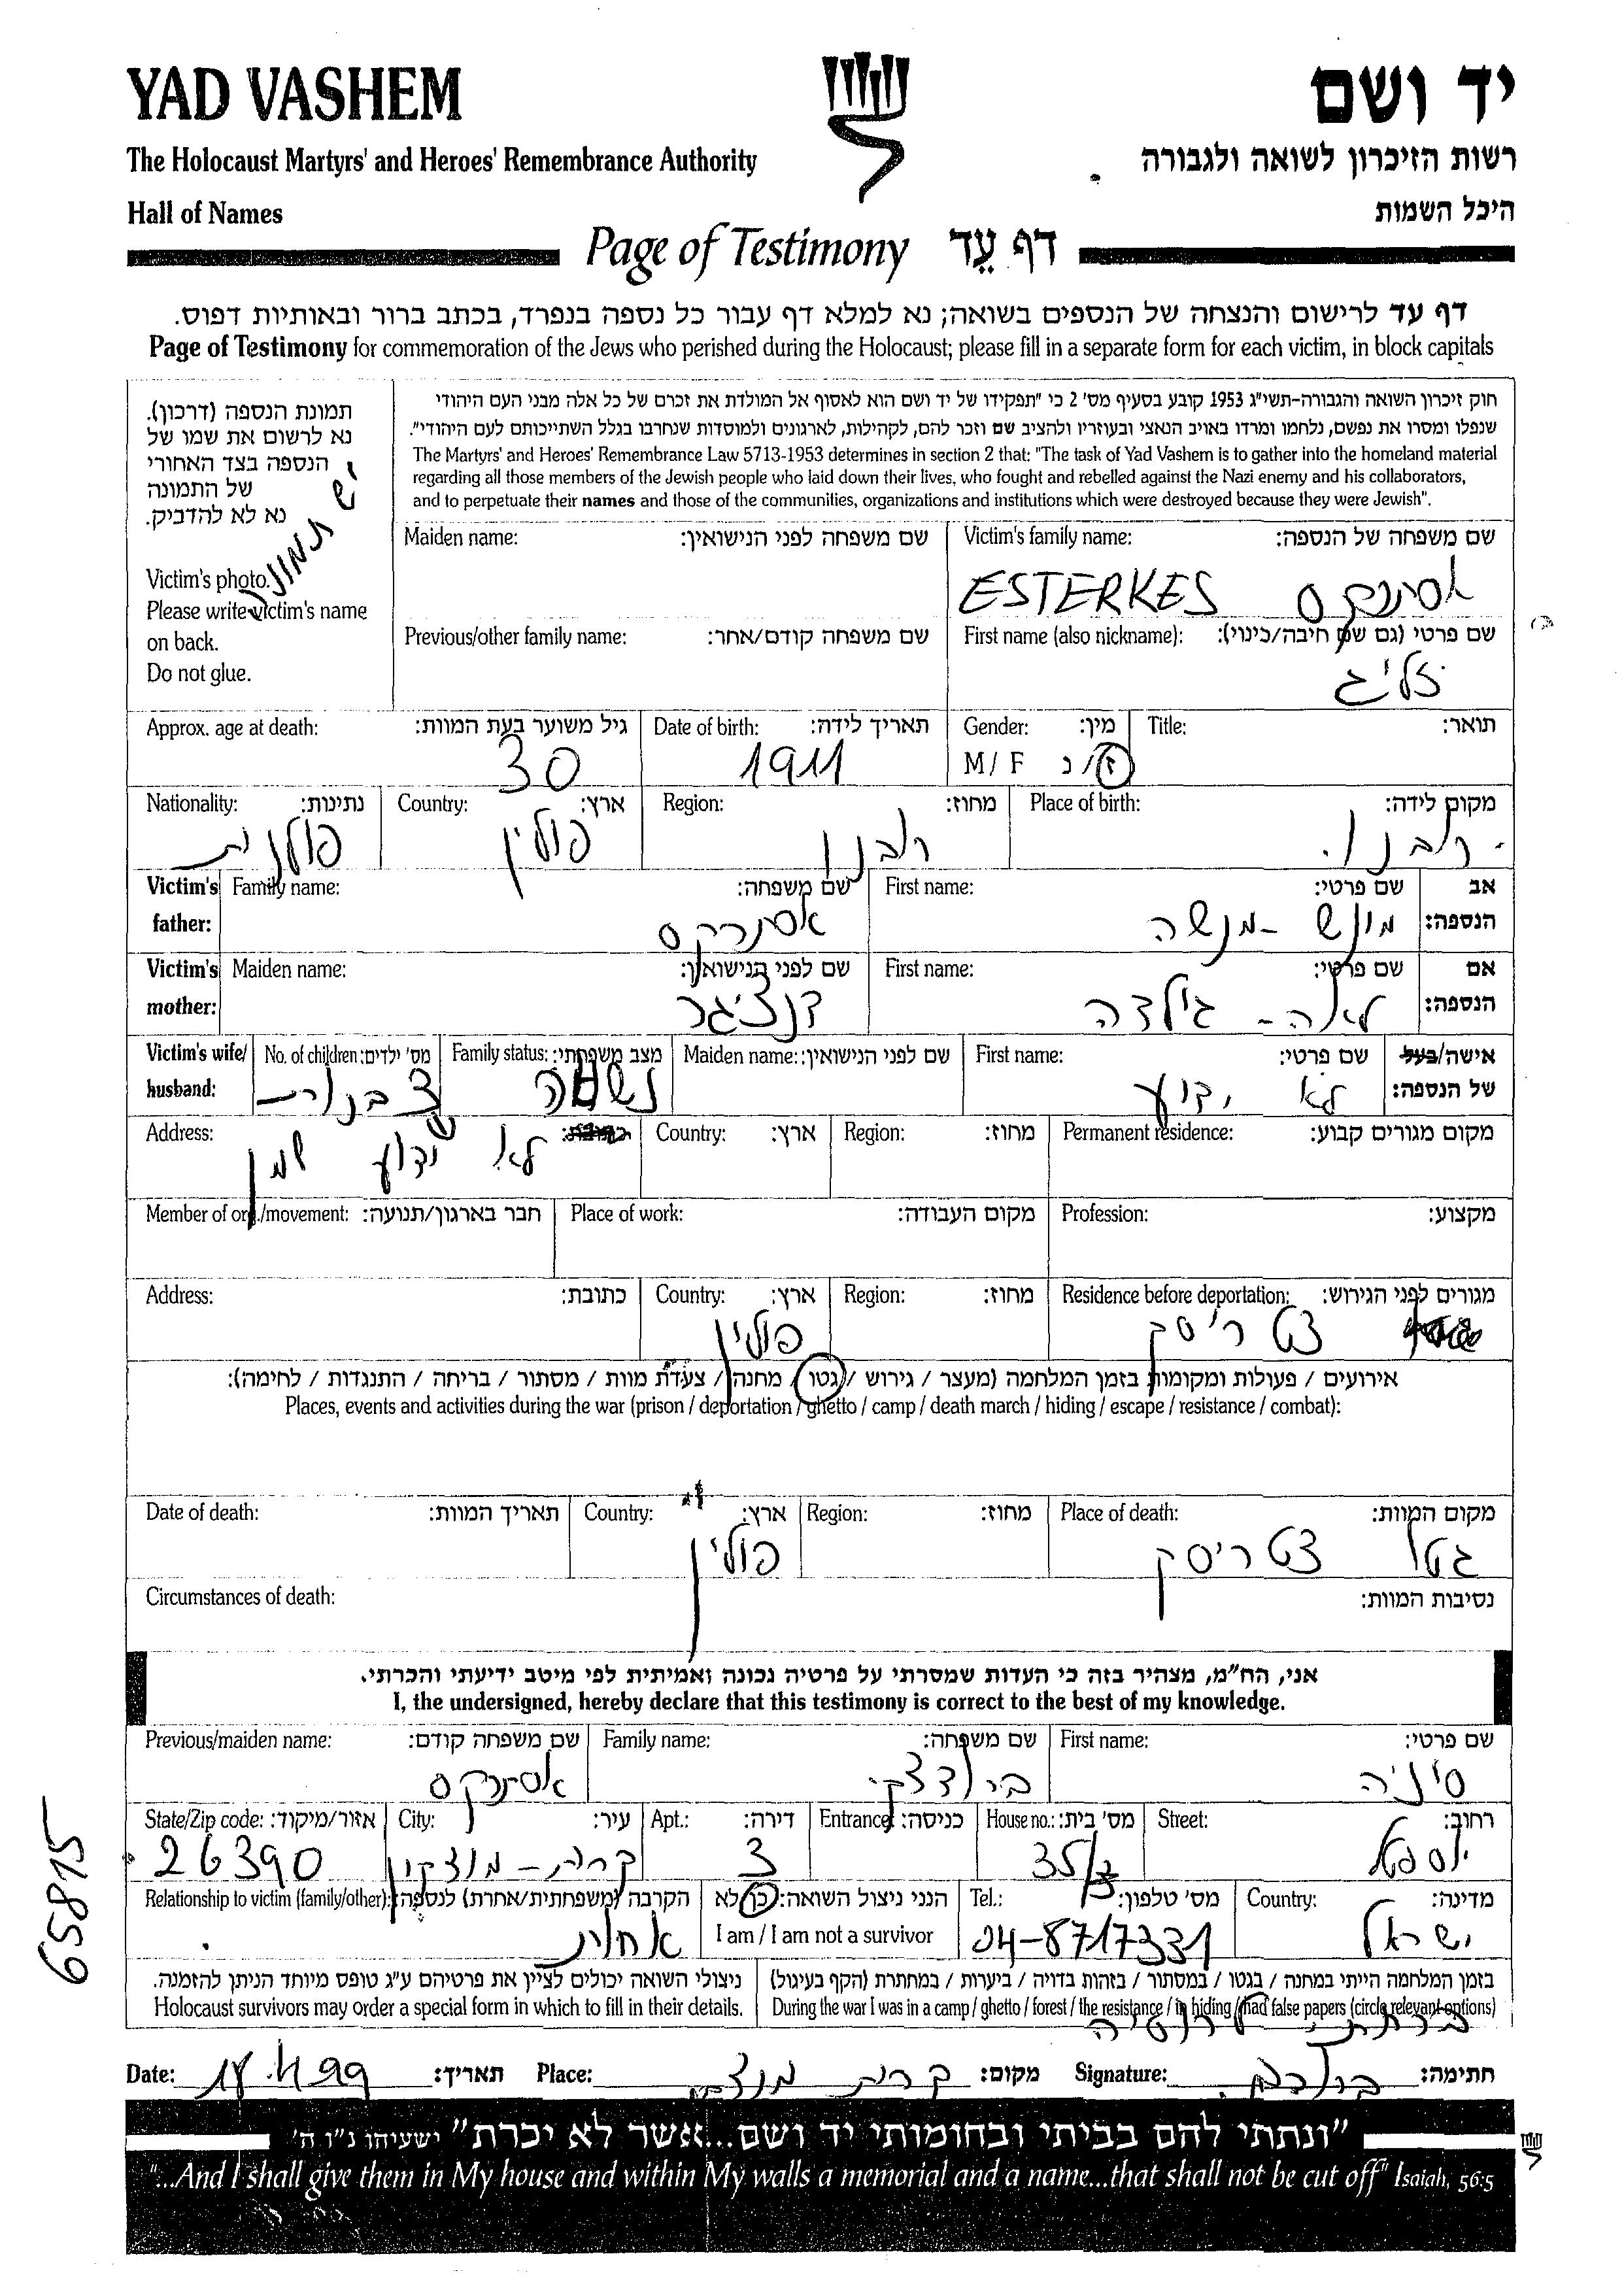 YAD VASHEM
יד ושם
The Holocaust Martyrs' and Heroes' Remembrance Authority
רשות הזיכרון לשואה ולגבורה
Hall of Names
היכל השמות
Page of Testimony דף עֵד
דף עד לרישום והנצחה של הנספים בשואה; נא למלא דף עבור כל נספה בנפרד, בכתב ברור ובאותיות דפוס.
Page of Testimony for commemoration of the Jews who perished during the Holocaust; please fill in a separate form for each victim, in block capitals
תמונת הנספה (דרכון).
נא לרשום את שמו של
הנספה בצד האחורי
של התמונה
נא לא להדביק.
יש תמונה
Victim's photo.
Please write victim's name
on back.
Do not glue.
חוק זיכרון השואה והגבורה-תשי"ג 1953 קובע בסעיף מס' 2 כי "תפקידו של יד ושם הוא לאסוף אל המולדת את זכרם של כל אלה מבני העם היהודי
שנפלו ומסרו את נפשם, נלחמו ומרדו באויב הנאצי ובעוזריו ולהציב שם וזכר להם, לקהילות, לארגונים ולמוסדות שנחרבו בגלל השתייכותם לעם היהודי".
The Martyrs' and Heroes' Remembrance Law 5713-1953 determines in section 2 that: "The task of Yad Vashem is to gather into the homeland material
regarding all those members of the Jewish people who laid down their lives, who fought and rebelled against the Nazi enemy and his collaborators,
and to perpetuate their names and those of the communities, organizations and institutions which were destroyed because they were Jewish".
Victim's family name: שם משפחה של הנספה:
ESTERKES אסתרקס
Maiden name: שם משפחה לפני הנישואין:
First name (also nickname): שם פרטי (גם שם חיבה/כינוי):
זליג
Previous/other family name: שם משפחה קודם/אחר:
Title: תואר:
Gender: מין:
M / F ז/נ
Date of birth: תאריך לידה:
1911
Approx. age at death: גיל משוער בעת המוות:
30
Place of birth: מקום לידה:
רובנו
Region: מחוז:
רובנו
Country: ארץ:
פולין
Nationality: נתינות:
פולנית
Victim's father: אב הנספה:
First name: שם פרטי:
מונש - מנשה
Family name: שם משפחה:
אסתרקס
Victim's mother: אם הנספה:
First name: שם פרטי:
לאה - גילדה
Maiden name: שם לפני הנישואין:
דנציגר
Victim's wife/ husband: אישה/בעל של הנספה:
First name: שם פרטי:
לא ידוע
Maiden name: שם לפני הנישואין:
Family status: מצב משפחתי:
נשוי
No. of children: מס' ילדים:
2 בנות
Permanent residence: מקום מגורים קבוע:
Region: מחוז:
Country: ארץ:
Address: כתובת:
לא ידוע שמן
Profession: מקצוע:
Place of work: מקום העבודה:
Member of org./movement: חבר בארגון/תנועה:
Residence before deportation: מגורים לפני הגירוש:
צטריסק
Region: מחוז:
Country: ארץ:
פולין
Address: כתובת:
אירועים / פעולות ומקומות בזמן המלחמה (מעצר / גירוש / גטו / מחנה / צעדת מוות / מסתור / בריחה / התנגדות / לחימה):
Places, events and activities during the war (prison / deportation / ghetto / camp / death march / hiding / escape / resistance / combat):
Place of death: מקום המוות:
גטו צטריסק
Region: מחוז:
Country: ארץ:
פולין
Date of death: תאריך המוות:
Circumstances of death: נסיבות המוות:
אני, הח"מ, מצהיר בזה כי העדות שמסרתי על פרטיה נכונה ואמיתית לפי מיטב ידיעתי והכרתי.
I, the undersigned, hereby declare that this testimony is correct to the best of my knowledge.
First name: שם פרטי:
סוניה
Family name: שם משפחה:
Previous/maiden name: שם משפחה קודם:
אסתרקס
Street: רחוב:
House no.: מס' בית:
35/ב
Entrance: כניסה:
Apt.: דירה:
3
City: עיר:
קרית-מוצקין
State/Zip code: אזור/מיקוד:
26390
Country: מדינה:
ישראל
Tel.: מס' טלפון:
04-8717331
הנני ניצול השואה: כן/לא
I am / I am not a survivor
Relationship to victim (family/other): הקרבה (משפחתית/אחרת) לנספה:
אחות
בזמן המלחמה הייתי במחנה / בגטו / במסתור / בזהות בדויה / ביערות / במחתרת (הקף בעיגול)
During the war I was in a camp / ghetto / forest / the resistance / in hiding / had false papers (circle relevant options)
ברחתי לרוסיה
ניצולי השואה יכולים לציין את פרטיהם ע"ג טופס מיוחד הניתן להזמנה.
Holocaust survivors may order a special form in which to fill in their details.
Date: 18.4.99 תאריך: Place: קרית מוצקין מקום: Signature: חתימה:
"ונתתי להם בביתי ובחומותי יד ושם...אשר לא יכרת" ישעיהו נ"ו ה'
"...And I shall give them in My house and within My walls a memorial and a name...that shall not be cut off" Isaiah, 56:5
65815